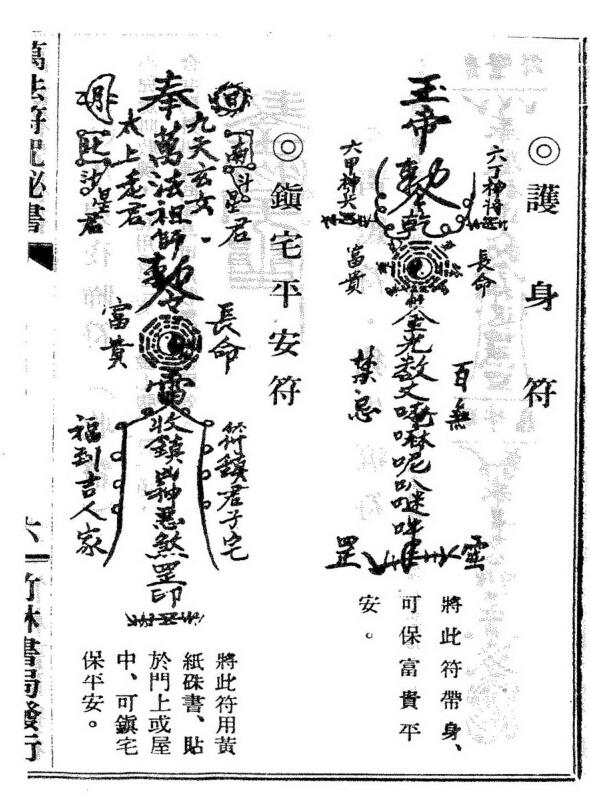 ◎護身符
玉帝敕
乾
六丁神將
六甲神兵
長命
富貴
百無
禁忌
罡
將此符帶身、
可保富貴平
安。
◎鎮宅平安符
奉萬法祖師敕
九天玄女
太上老君
南斗星君
北斗星君
月
長命
富貴
雷
收鎮凶神惡煞罡印
符鎮君子宅
福到吉人家
將此符用黃
紙硃書、貼
於門上或屋
中、可鎮宅
保平安。
萬法符咒秘書
六
竹林書局發行